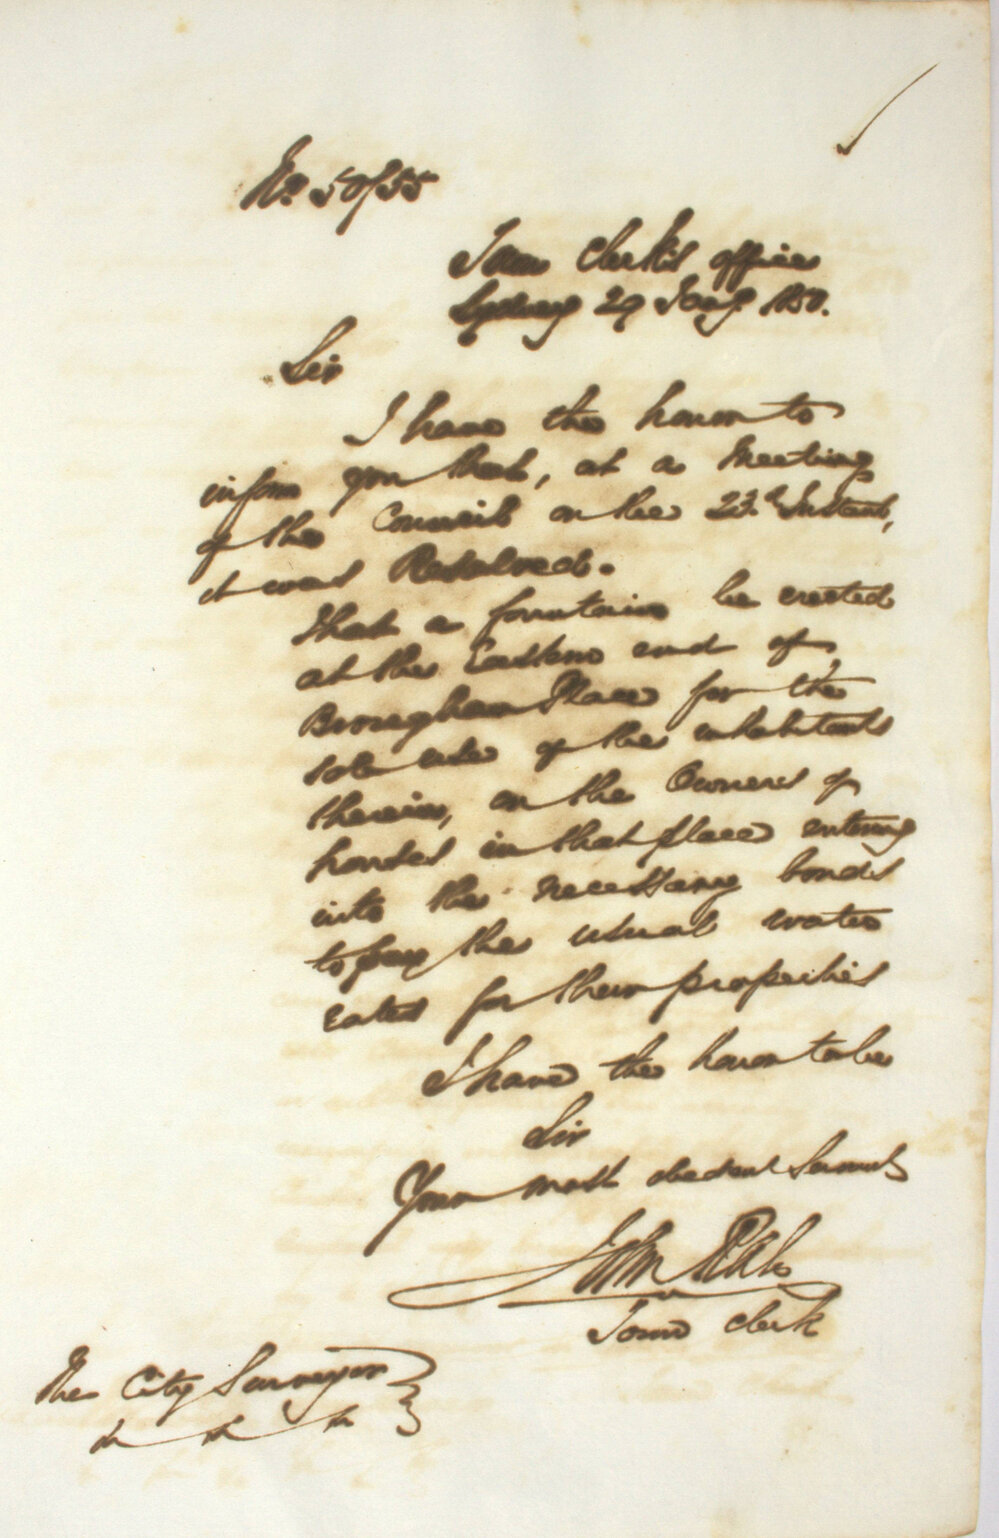 No 50/55
Town Clerk's office
Sydney 29 Jany. 1850.
Sir
I have the honor to
inform you that, at a Meeting
of the Council on the 23.d Instant,
it was Resolved.
That a fountain be erected
at the Eastern end of
Brougham Place for the
sole use of the inhabitants
therein, on the Owners of
houses in that place entering
into the necessary bonds
to pay the usual water
rates for their properties
I have the honor to be
Sir
Your most obedient Servant
John
Town Clerk
The City Surveyor